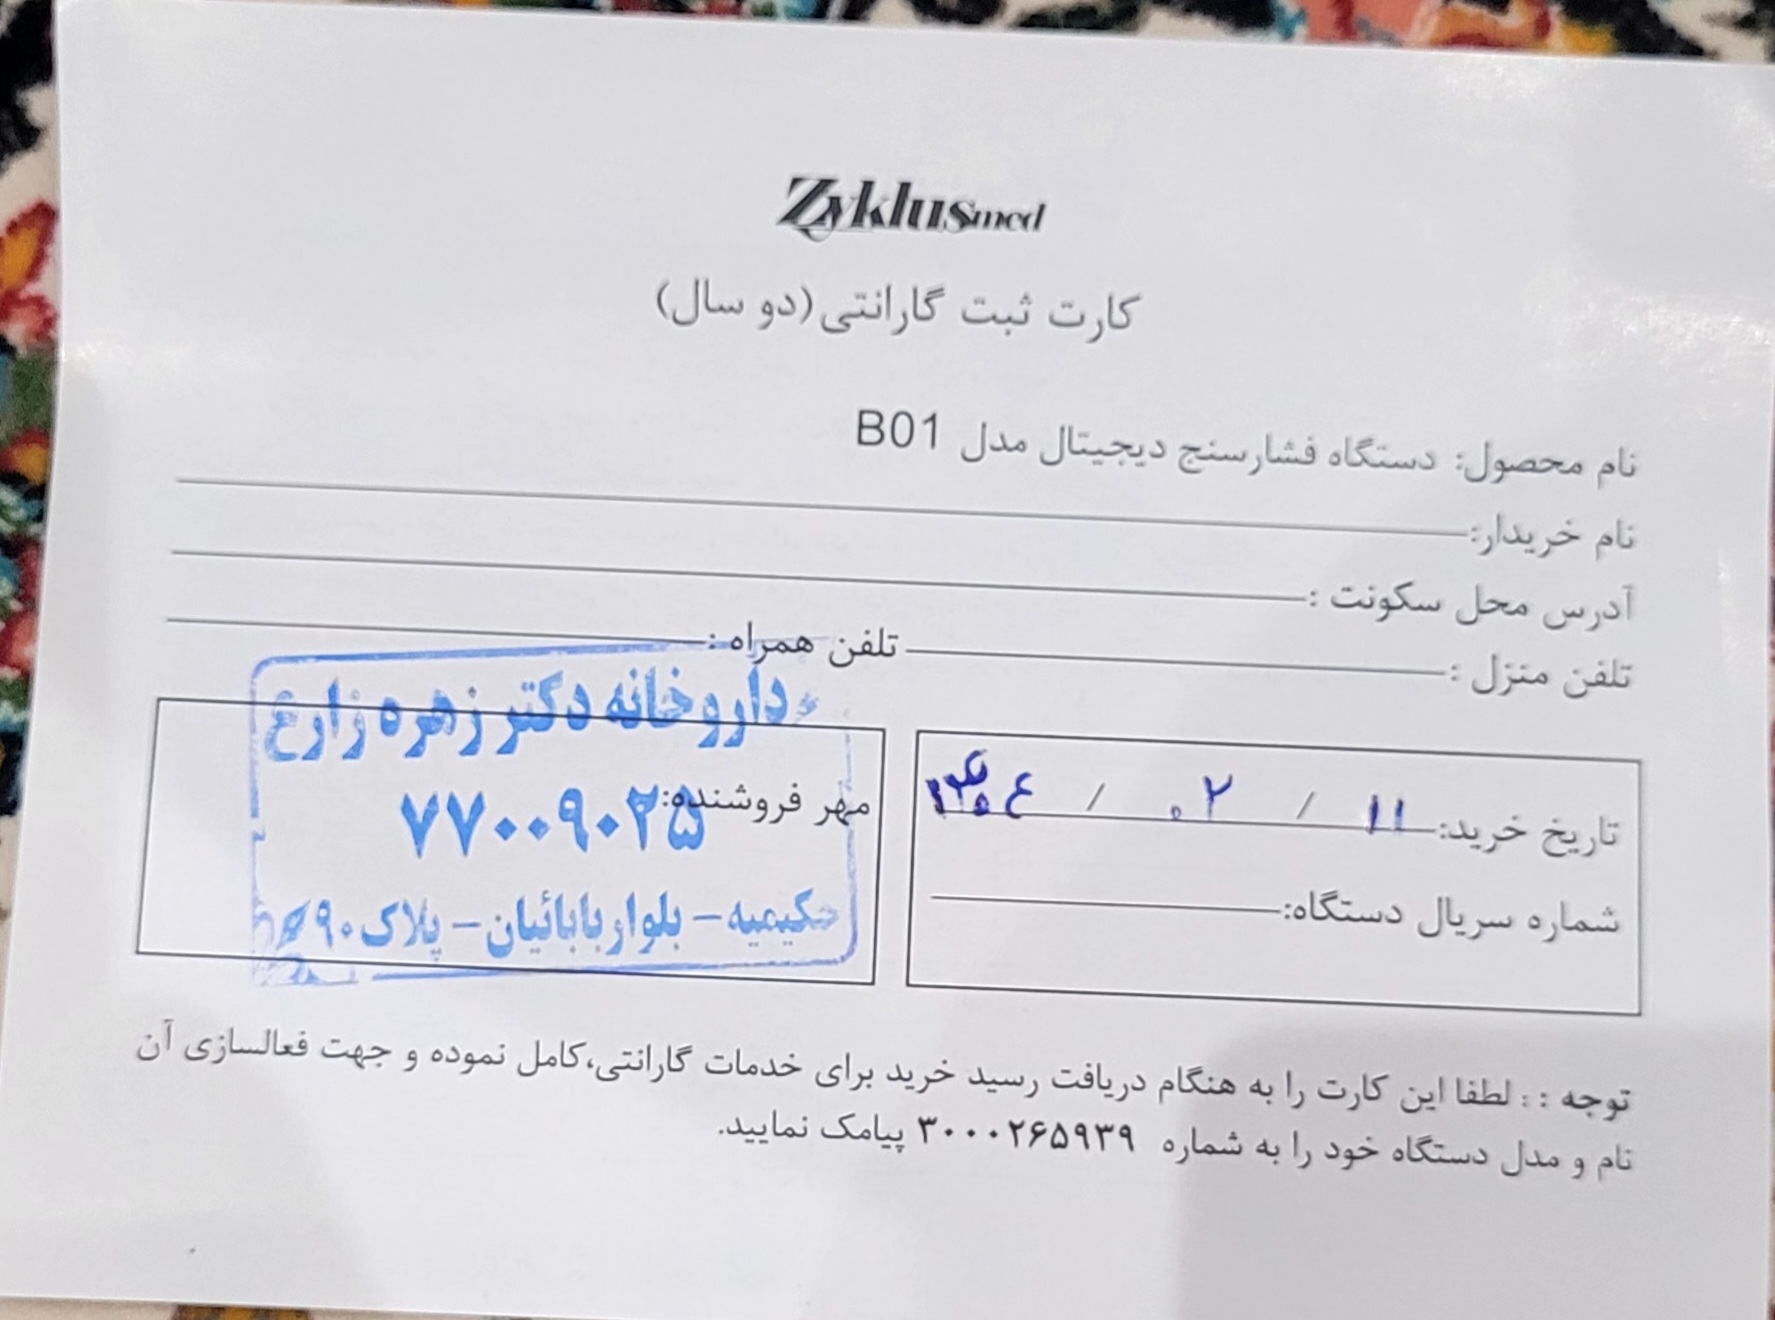 Zyklusmed
کارت ثبت گارانتی(دو سال)
نام محصول: دستگاه فشارسنج دیجیتال مدل B01
نام خریدار:
آدرس محل سکونت :
تلفن منزل : تلفن همراه :
تاریخ خرید: ۱۱ / ۰۲ /
شماره سریال دستگاه:
مهر فروشنده:
داروخانه دکتر زهره زارع
۷۷۰۰۹۰۲۵
حکیمیه - بلوار بابائیان - پلاک ۹۰
توجه : : لطفا این کارت را به هنگام دریافت رسید خرید برای خدمات گارانتی،کامل نموده و جهت فعالسازی آن
نام و مدل دستگاه خود را به شماره ۳۰۰۰۲۶۵۹۳۹ پیامک نمایید.